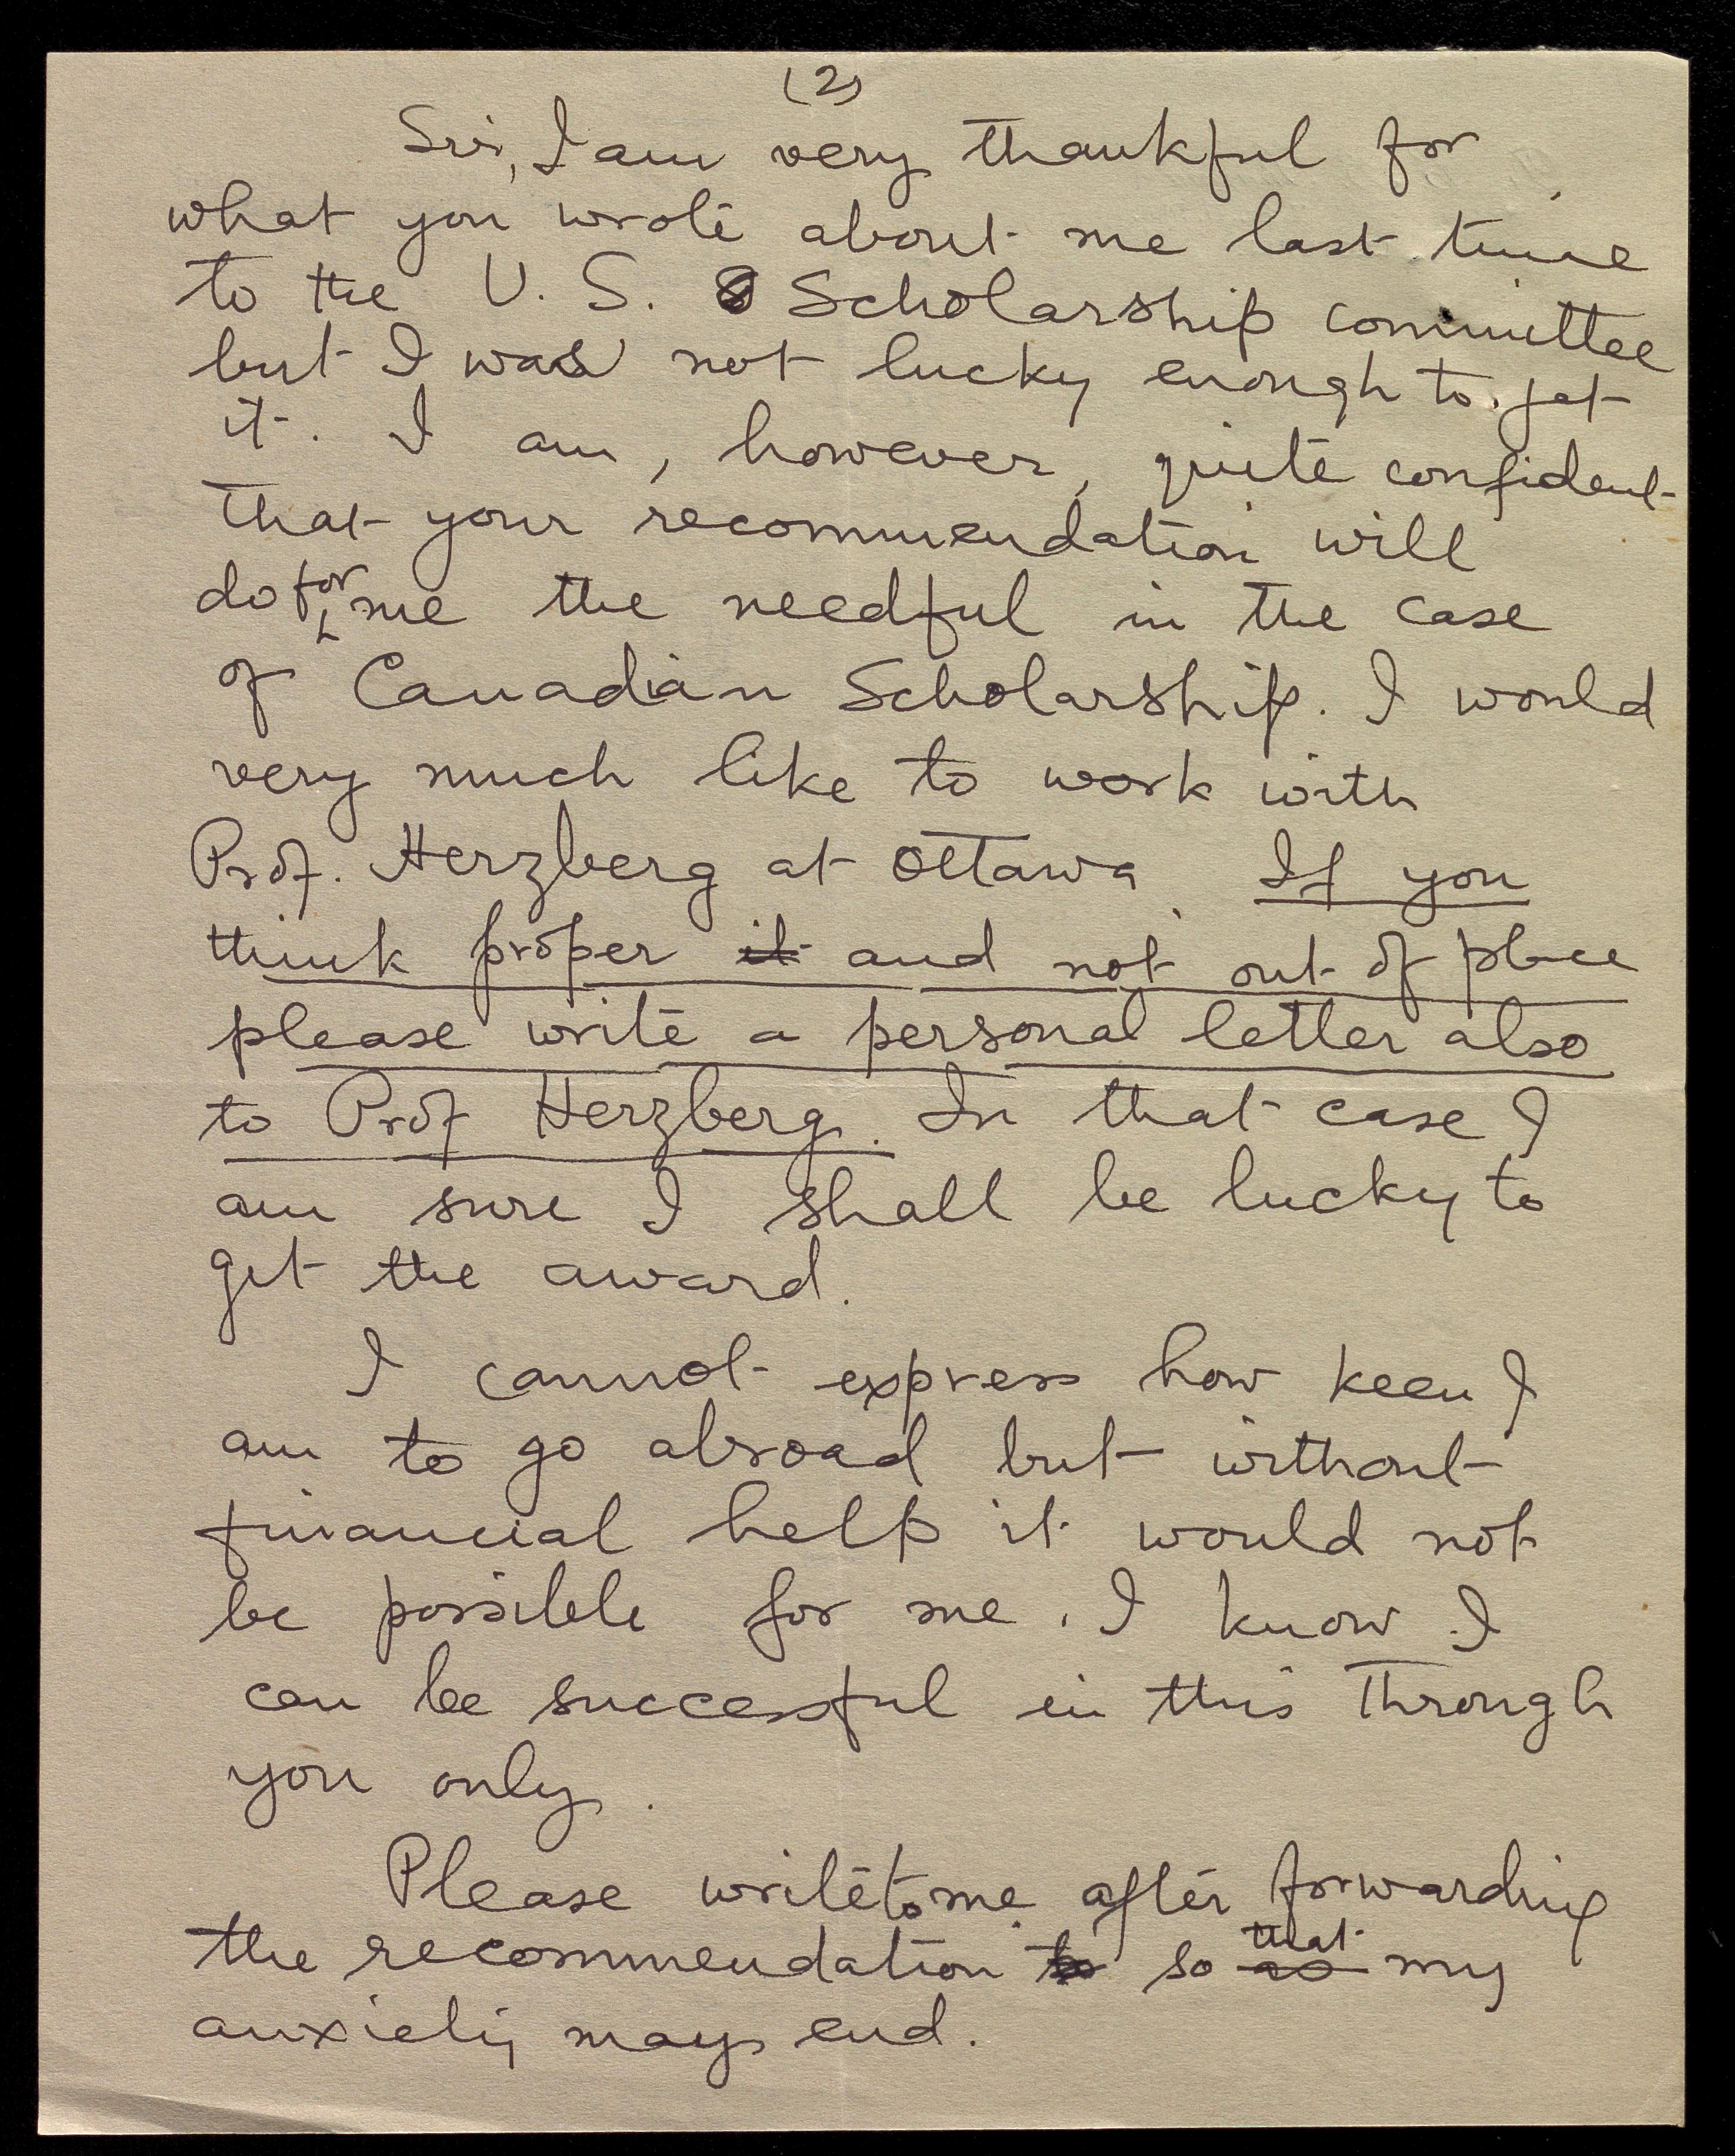 (2)
Sir, I am very thankful for
what you wrote about me last time
to the U. S. Scholarship committee
but I was not lucky enough to get
it. I am, however, quite confident
that your recommendation will
do for me the needful in the case
of Canadian Scholarship. I would
very much like to work with
Prof. Herzberg at Ottawa. If you
think proper it and not out of place
please write a personal letter also
to Prof Herzberg. In that case I
am sure I shall be lucky to
get the award.
I cannot express how keen I
am to go abroad but without
financial help it would not
be possible for me. I know I
can be successful in this through
you only.
Please write to me after forwarding
the recommendation to so as that my
anxiety may end.